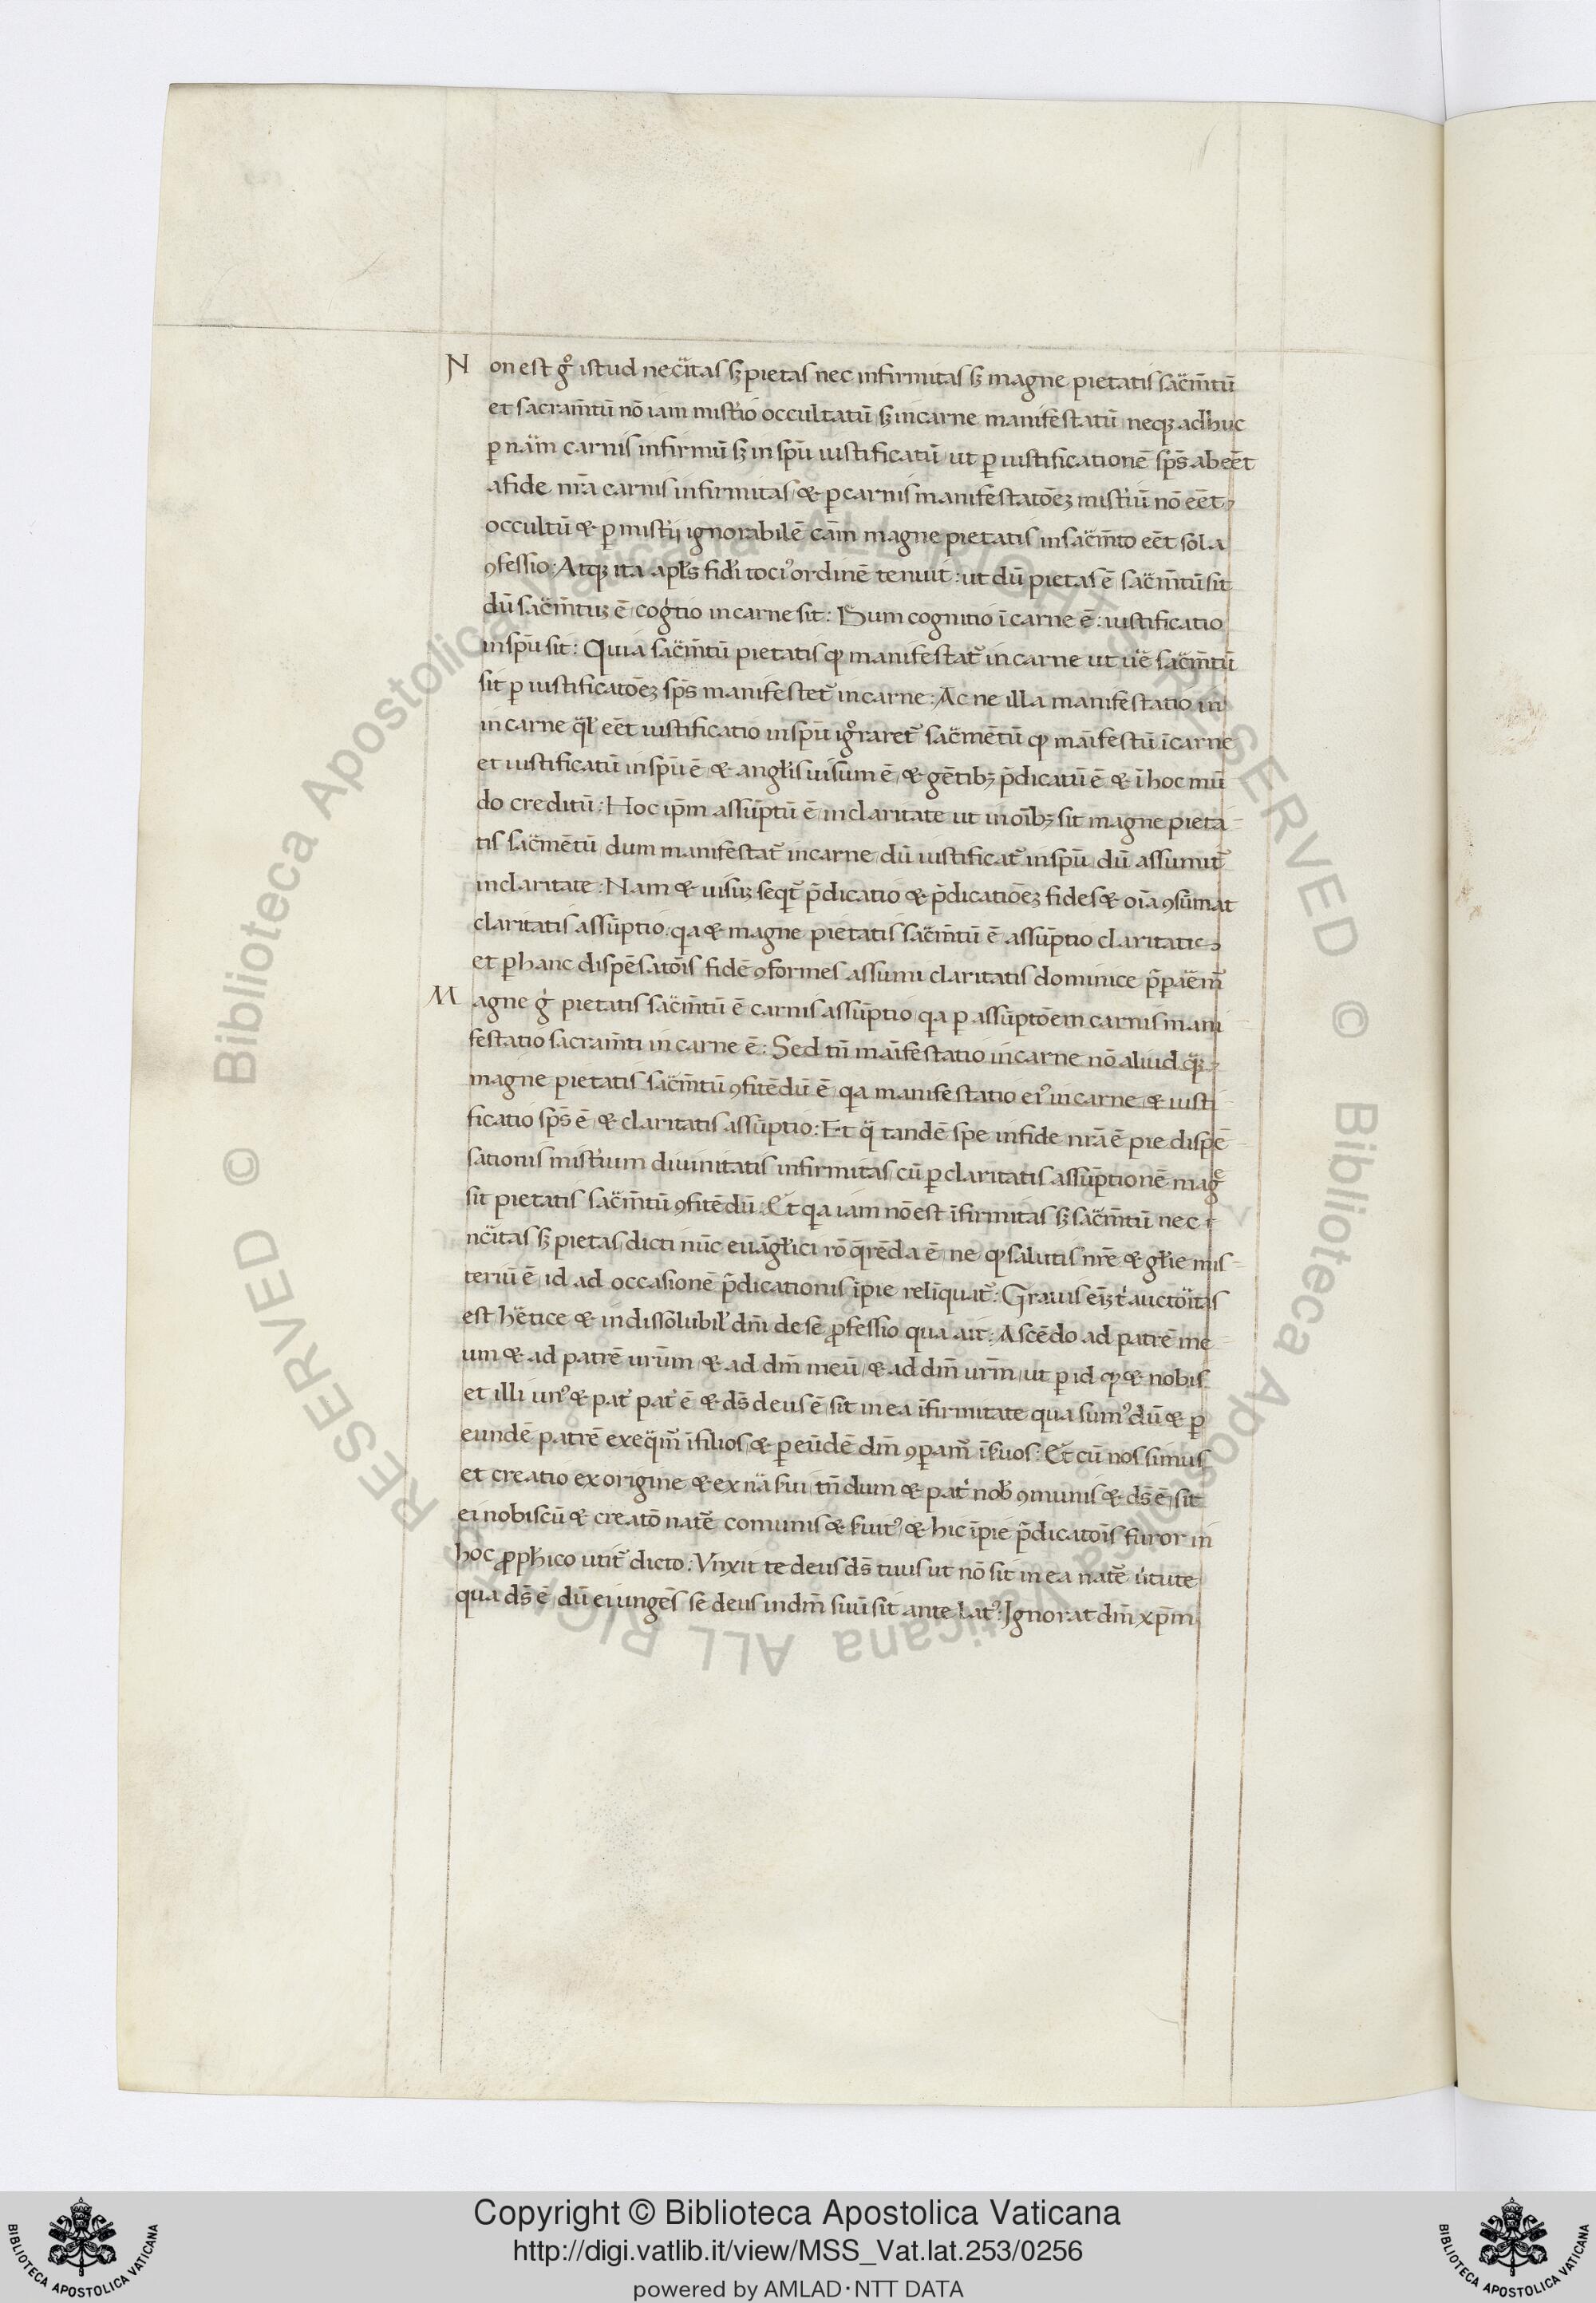 Non est gͦ istud nec̈itas sꝫ pietas nec infirmitas sꝫ magne pietatis sac̈m̄tū
et sacram̄tū nō iam mist̓io occultatū sꝫ in carne manifestatū neqꝫ adhuc
ꝑ näm carnis infirmū sꝫ in spū iustificatū ut ꝑ iustificationē sp̄s abeēt
a fide nr̄a carnis infirmitas & ꝑ carnis manifestatōeꝫ mist̓iū nō eēt
occultū & ꝑ mist̓ij ignorabilē cām magne pietatis in sac̈m̄to eēt sola
ꝯfessio: Atqꝫ ita apl̓s fidi tociꝰ ordinē tenuit: ut dū pietas ē sac̈m̄tū sit
dū sac̈m̄tuꝫ ē cog̓tio in carne sit: Dum cognitio ī carne ē: iustificatio
in spū sit: Quia sac̈m̄tū pietatis qͥ manifestat᷑ in carne ut u̓e sac̈m̄tū
sit ꝑ iustificatōeꝫ sp̄s manifestet᷑ in carne: Ac ne illa manifestatio in
in carne q̈l̓ eēt iustificatio in spū igͦraret᷑ sac̈mētū qͥ māifestū ī carne
et iustificatū in spū ē & angl̓is uisum ē & gētibꝫ p̄dicatū ē & ī hoc mū
do creditū: Hoc ip̄m assūptū ē in claritate ut in oībꝫ sit magne pieta-
tis sac̈mētū dum manifestat᷑ in carne dū iustificat᷑ in spū dū assumit᷑
in claritate: Nam & uisuꝫ seqͥt᷑ p̄dicatio & p̄dicatiōeꝫ fides & oīa ꝯsūmat
claritatis assūptio qa & magne pietatis sac̈m̄tū ē assūptio claritatis
et ꝑ hanc dispēsatōis fidē ꝯformes assumi claritatis dominice p̄ꝑaëm᷑
Magne g̓ pietatis sac̈m̄tū ē carnis assūptio qa ꝑ assūptōem carnis mani
festatio sacram̄ti in carne ē: Sed tn̄ māifestatio in carne nō aliud q̈ꝫ
magne pietatis sac̈m̄tū ꝯfitēdū ē qa manifestatio eiꝰ in carne & iusti
ficatio sp̄s ē & claritatis assūptio: Et q̈ tandē spe in fide nr̄a ē pie dispē-
sationis mist̓ium diuinitatis infirmitas cū ꝑ claritatis assūptionē magͤ
sit pietatis sac̈m̄tū ꝯfitēdū: Et qa iam nō est īfirmitas sꝫ sac̈m̄tū nec
nc̈itas sꝫ pietas dicti nūc euāgl̓ici rō q̄rēda ē ne qͥ salutis nr̄e & gl̓ie mis-
teriū ē id ad occasionē p̄dicationis īpie relīquat᷑: Grauis eīꝫ t̓ auctöitas
est hëtice & indissolubil̓ dn̄i de se ꝓfessio qua ait: Ascēdo ad patrē me
um & ad patrē ur̄um & ad dm̄ meū & ad dm̄ ur̄m ut ꝑ id qͥ & nobis
et illi unꝰ & pat̓ pat̓ ē & ds̄ deus ē sit in ea īfirmitate qua sumꝰ dū & ꝑ
eundē patrē exeq̈m᷑ ī filios & ꝑ eūdē dm̄ ꝯꝑam᷑ ī s̓uos: Et cū nos simus
et creatio ex origine & ex nä s̓ui tn̄ dum & pat̓ nob̓ ꝯmunis & ds̄ ē sit
ei nobiscū & creatō natë comunis & s̓uitꝰ & hic īpie p̄dicatōis furor in
hoc ꝓph̓ico utit᷑ dicto: Vnxit te deus ds̄ tuus ut nō sit in ea natë u̓tute
qua ds̄ ē dū ei ungēs se deus in dm̄ suū sit ante latꝰ: Ignorat dm̄ xp̄m
Copyright © Biblioteca Apostolica Vaticana
http://digi.vatlib.it/view/MSS_Vat.lat.253/0256
powered by AMLAD·NTT DATA